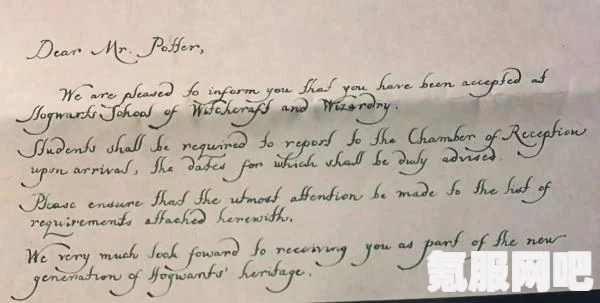 Dear Mr. Potter,
We are pleased to inform you that you have been accepted at
Hogwarts School of Witchcraft and Wizardry.
Students shall be required to report to the Chamber of Reception
upon arrival, the dates for which shall be duly advised.
Please ensure that the utmost attention be made to the list of
requirements attached herewith.
We very much look foward to receiving you as part of the new
generation of Hogwarts' heritage.
氪服网吧